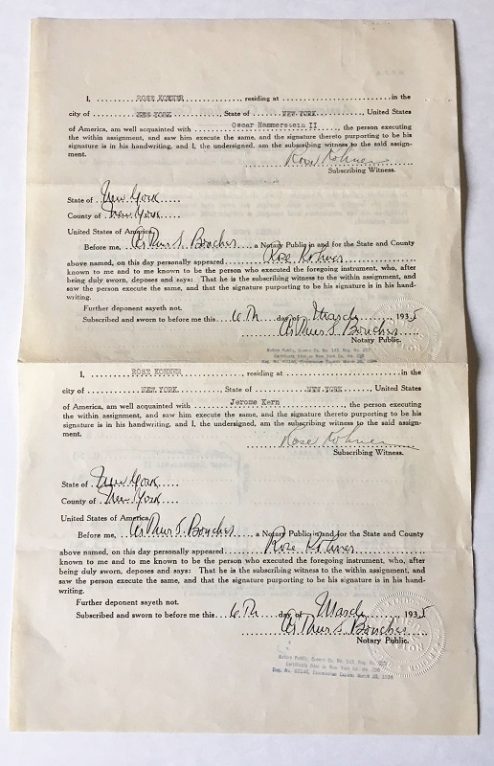 I, ROSE KOHNER residing at in the
city of NEW YORK, State of NEW YORK, United States
of America, am well acquainted with Oscar Hammerstein II, the person executing
the within assignment, and saw him execute the same, and the signature thereto purporting to be his
signature is in his handwriting, and I, the undersigned, am the subscribing witness to the said assign-
ment.
Rose Kohner
Subscribing Witness.
State of New York
County of New York
United States of America,
Before me, Arthur S. Boucher a Notary Public in and for the State and County
above named, on this day personally appeared Rose Kohner
known to me and to me known to be the person who executed the foregoing instrument, who, after
being duly sworn, deposes and says: That he is the subscribing witness to the within assignment, and
saw the person execute the same, and that the signature purporting to be his signature is in his hand-
writing.
Further deponent sayeth not.
Subscribed and sworn to before me this 6th day of March 1935
Arthur S. Boucher
Notary Public.
I, ROSE KOHNER residing at in the
city of NEW YORK State of NEW YORK, United States
of America, am well acquainted with Jerome Kern, the person executing
the within assignment, and saw him execute the same, and the signature thereto purporting to be his
signature is in his handwriting, and I, the undersigned, am the subscribing witness to the said assign-
ment.
Rose Kohner
Subscribing Witness.
State of New York
County of New York
United States of America,
Before me, Arthur S. Boucher a Notary Public in and for the State and County
above named, on this day personally appeared Rose Kohner
known to me and to me known to be the person who executed the foregoing instrument, who, after
being duly sworn, deposes and says: That he is the subscribing witness to the within assignment, and
saw the person execute the same, and that the signature purporting to be his signature is in his hand-
writing.
Further deponent sayeth not.
Subscribed and sworn to before me this 6th day of March 1935
Arthur S. Boucher
Notary Public.